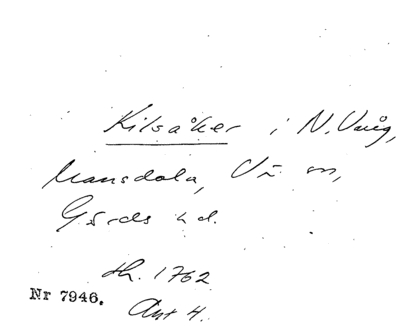 Kilsåker i N. Vång,
Mansdala, Vä sn,
Gärds hd.
Lh. 1762
Nr 7946. Akt 4.